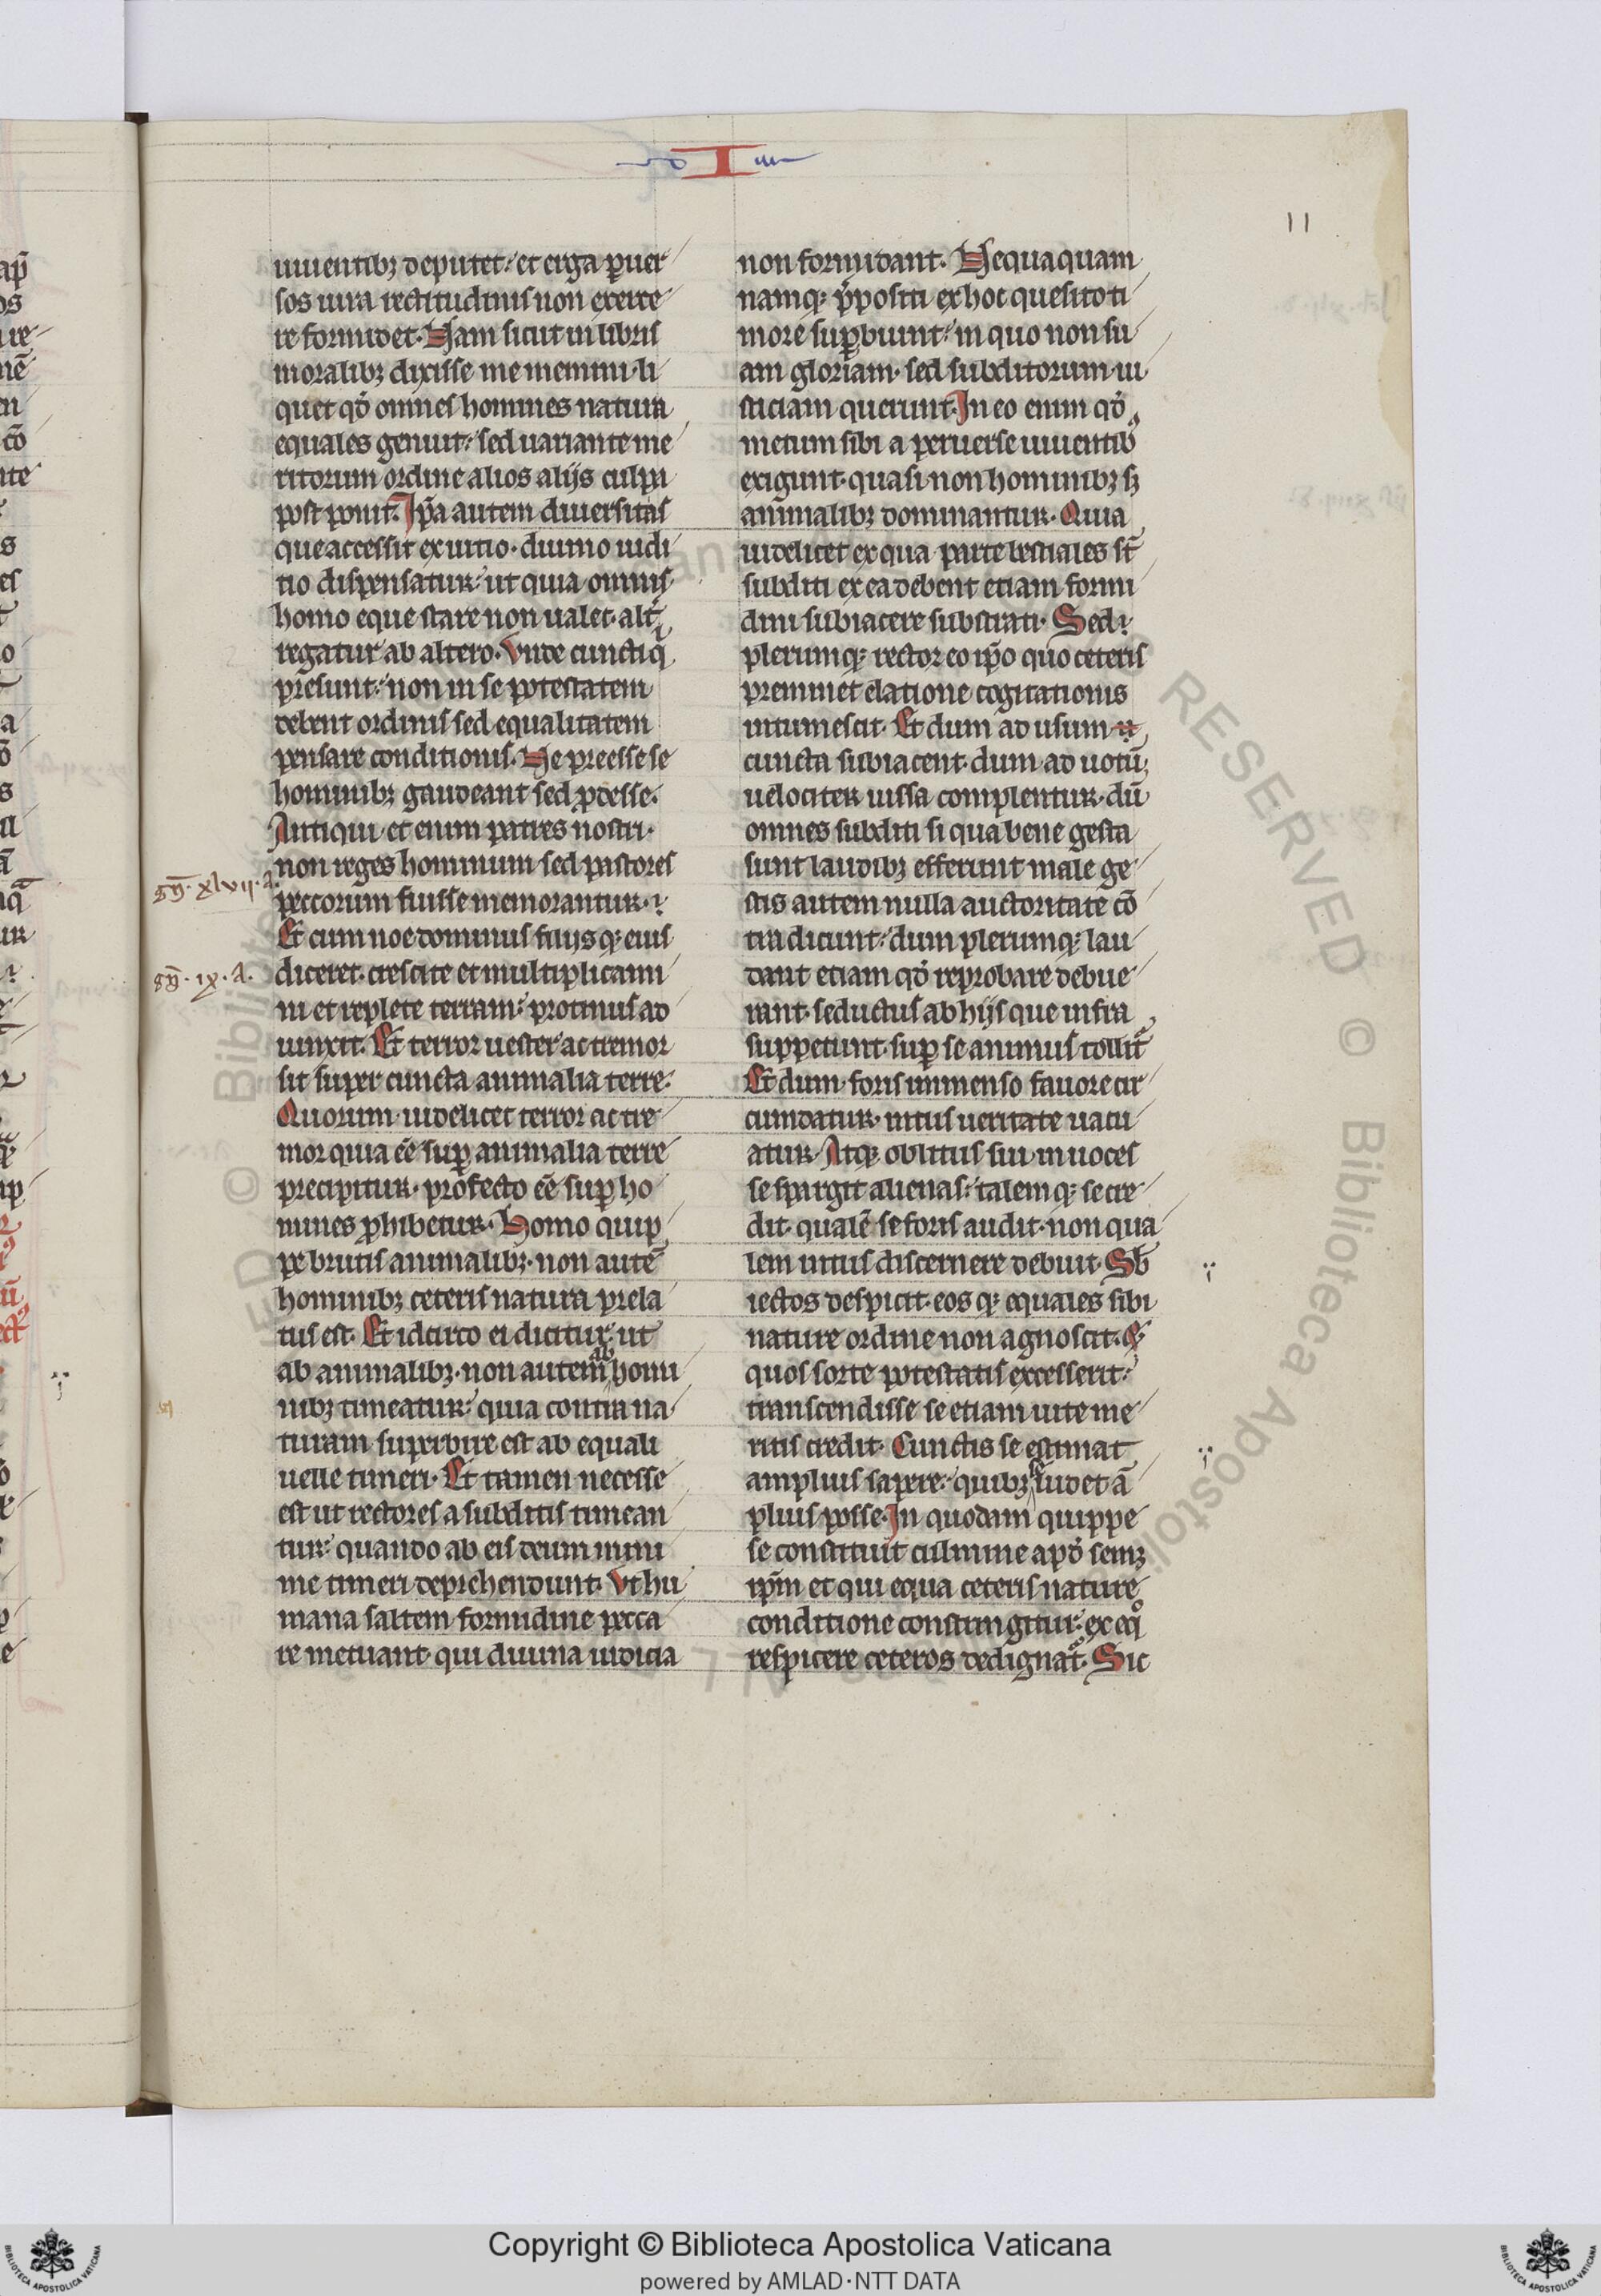 I
11
uiuentibꝫ deputet. et erga ꝑuer
sos iura rectitudinis non exerce
re formidet. Nam sicut in libris
moralibꝫ dixisse me memini li
quet qđ omnes homines natura
equales genuit. sed uariante me
ritorum ordine alios alijs culpa
post ponit. Ip̃a autem diuersitas
que accessit ex uitio. diuino iudi
tio dispensatur. ut quia omnis
homo eque stare non ualet. alt̾
regatur ab altero. Vnde cuncti qͥ
pr̃esunt. non in se potestatem
debent ordinis sed equalitatem
pensare conditionis. Ne preesse se
hominibꝫ gaudeant sed ꝓdesse.
Antiqui et enim patres nostri.
non reges hominum sed pastores
peccorum fuisse memorantur.
Et cum noe dominus filijs qꝫ eius
diceret. crescite et multiplicami
ni et replete terram. protinus ad
iunxit. Et terror uester ac tremor
sit super cuncta animalia terre.
Quorum uidelicet terror ac tre
mor quia eẽ suꝑ animalia terre
precipitur. profecto eẽ suꝑ ho
mines ꝓhibetur. Homo quip
pe brutis animalibꝫ. non autẽ
hominibꝫ ceteris natura prela
tus est. Et idcirco ei dicitur. ut
ab animalibꝫ. non autem ab homi
nibꝫ timeatur. quia contra na
turam superbire est ab equali
uelle timeri. Et tamen necesse
est ut rectores a subditis timean
tur. quando ab eis deum mini
me timeri deprehendunt. Vt hu
mana saltem formidine pecca
re metuant qui diuina iudicia
gñ. xlvii. a.
gñ. ix. a.
non formidant. Nequaquam
namqꝫ p̃positi ex hoc quesito ti
more suꝑbiunt. in quo non su
am gloriam. sed subditorum iu
sticiam querunt. In eo enim qđ
metum sibi a peruerse uiuentibꝰ
exigunt. quasi non hominibꝫ sꝫ
animalibꝫ dominantur. Quia
uidelicet ex qua parte bestiales st̃
subditi ex ea debent etiam formi
dini subiacere substrati. Sed ⁊
plerumqꝫ rector eo ip̃o quo ceteris
preminet elatione cogitationis
intumescit. Et dum ad usum
cuncta subiacent. dum ad uotũ
uelociter iussa complentur. dũ
omnes subditi si qua bene gesta
sunt laudibꝫ efferunt male ge
stis autem nulla auctoritate cõ
tra dicunt. dum plerumqꝫ lau
dant etiam qđ reprobare debue
rant. seductus ab hijs que infra
suppetunt. suꝑ se animus tollit᷑
Et dum foris immenso fauore cir
cumdatur. intus ueritate uacu
atur. Atqꝫ oblitus sui. in uoces
se spargit alienas. talem qꝫ se cre
dit. qualẽ se foris audit. non qua
lem intus discernere debuit. Sb̃
iectos despicit. eos qꝫ equales sibi
nature ordine non agnoscit. ⁊
quos sorte potestatis excesserit.
transcendisse se etiam uite me
ritis credit. Cunctis se estimat
amplius sapere. quibꝫ se uidet ã
plius posse. In quodam quippe
se constituit culmine apđ semꝫ
ip̃m et qui equa ceteris nature
conditione constringitur. ex eq̊
respicere ceteros dedignat᷑. Sic
Copyright © Biblioteca Apostolica Vaticana
powered by AMLAD·NTT DATA